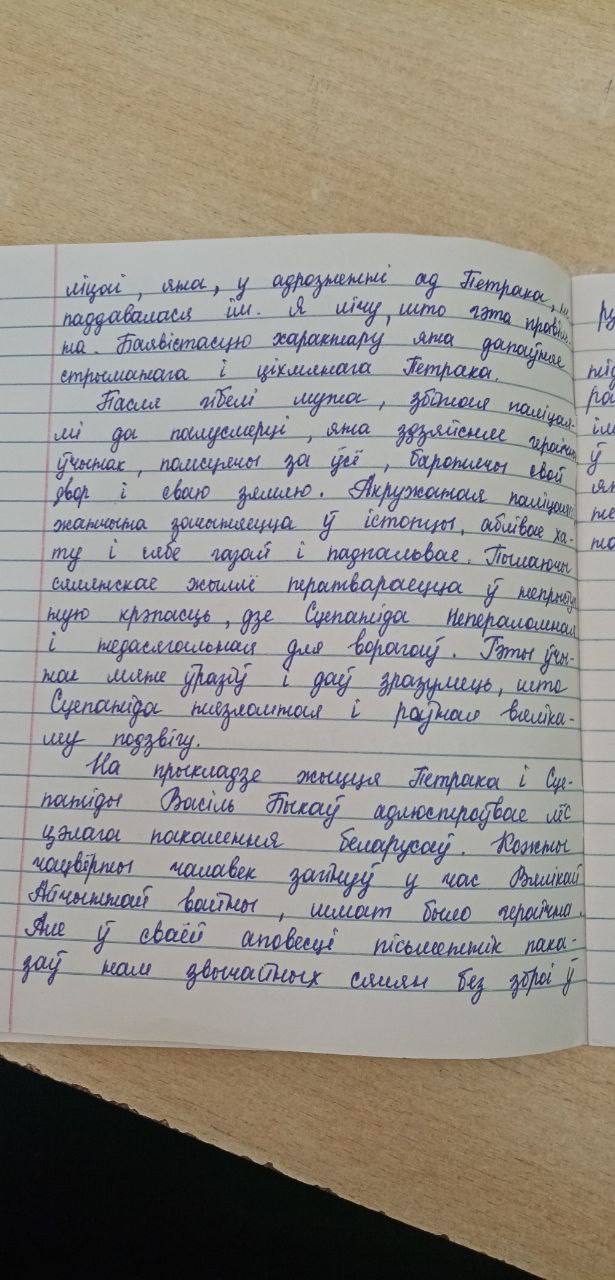 ліцаі, яна, у адрозненні ад Петрака, н
паддавалася ім. Я лічу, што гэта правіль
на. Баявістасцю характару яна дапаўняе
стрыманага і ціхмянага Петрака.
Пасля гібелі мужа, збітая паліцая-
мі да паўсмерці, яна здзяйсняе гераічны
ўчынак, помсцячы за ўсё, баронячы свой
двор і сваю зямлю. Акружаная паліцаямі
жанчына зачыняецца ў істопцы, аблівае ха-
ту і сябе газай і падпальвае. Пылаючы
сялянскае жыллё ператвараецца ў непрыступ
ную крэпасць, дзе Сцепаніда непераломная
і недасягальная для ворагаў. Гэты ўчы-
нак мяне ўразіў і даў зразумець, што
Сцепаніда нязломная і роўная вяліка-
му подзвігу.
На прыкладзе жыцця Петрака і Сце-
паніды Васіль Быкаў адлюстроўвае лёс
цэлага пакалення беларусаў. Кожны
чацвёрты чалавек загінуў у час Вялікай
Айчыннай вайны, шмат было гераічна.
Але ў сваёй аповесці пісьменнік пака-
заў нам звычайных сялян без зброі ў